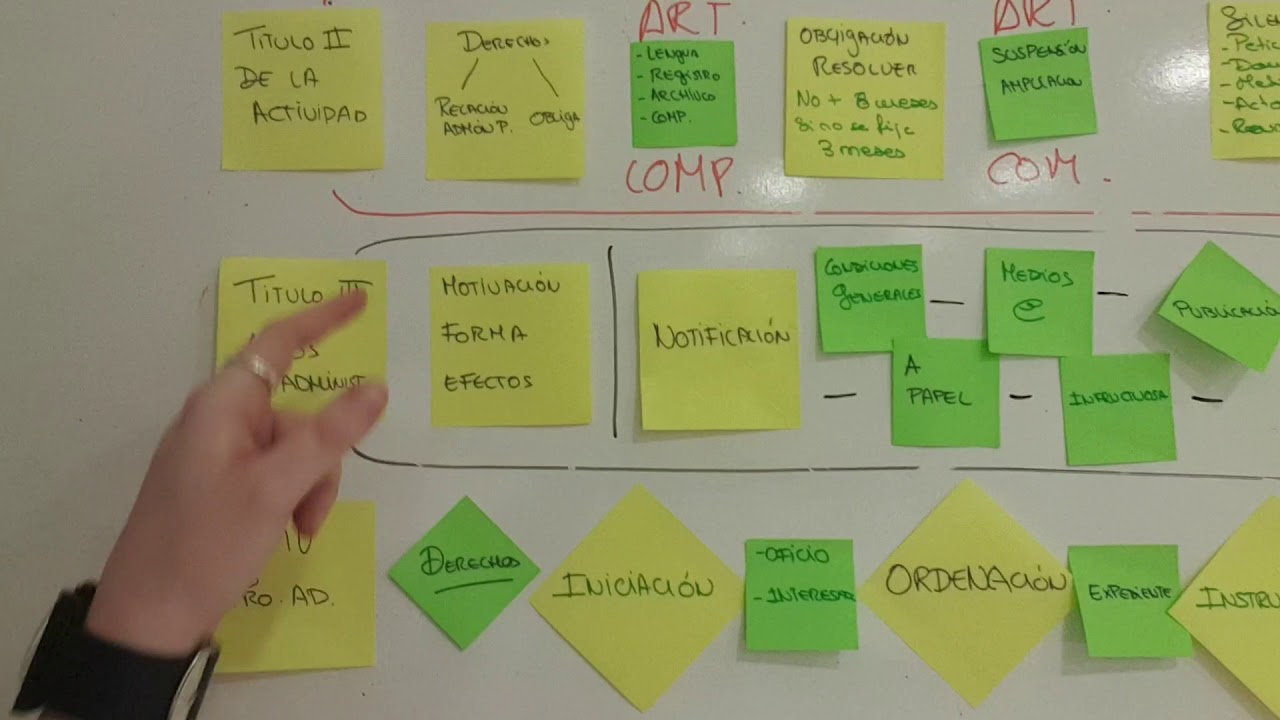 TITULO II
DE LA
ACTIVIDAD
DERECHOS
RELACIÓN
ADMÓN P.
OBLIGA
ART
- LENGUA
- REGISTRO
- ARCHIVO
- COMP.
COMP.
OBLIGACIÓN
RESOLVER
No + 6 meses
Si no se fija
3 meses
ART
SUSPENSIÓN
AMPLIACION
COM.
- Petic
TITULO III
ADMINIST
MOTIVACIÓN
FORMA
EFECTOS
NOTIFICACIÓN
CONDICIONES
GENERALES
A
PAPEL
MEDIOS
@
INFRUCTUOSA
PUBLICACIÓ
RO. AD.
DERECHOS
INICIACIÓN
- OFICIO
- INTERESAD
ORDENACIÓN
EXPEDIENTE
INSTRU